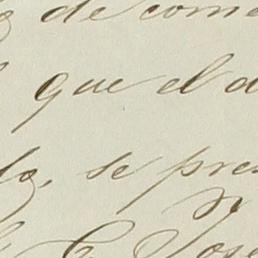 de come
que el d
do, se pres
José